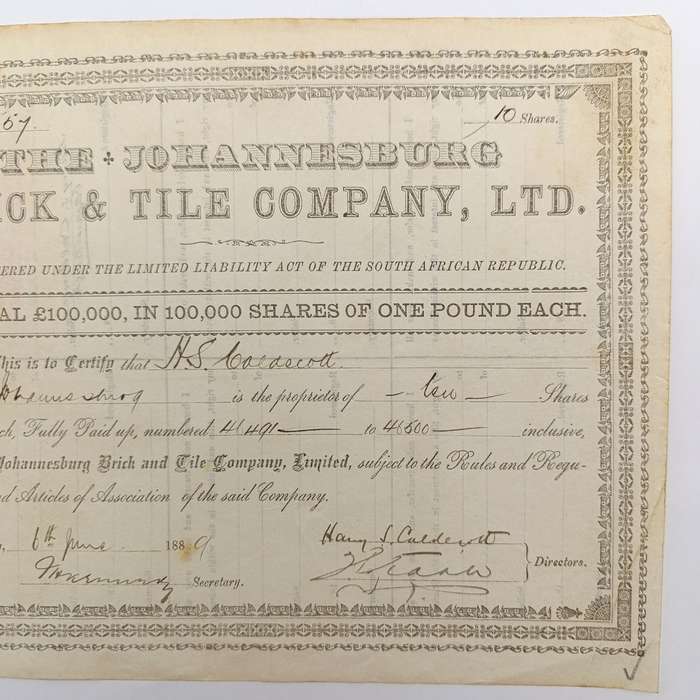 57. 10 Shares.
THE JOHANNESBURG
ICK & TILE COMPANY, LTD.
ERED UNDER THE LIMITED LIABILITY ACT OF THE SOUTH AFRICAN REPUBLIC.
AL £100,000, IN 100,000 SHARES OF ONE POUND EACH.
This is to Certify that H.S. Caldecott.
ohannesburg is the proprietor of ten Shares
ch, Fully Paid up, numbered 46,491 to 46500 inclusive,
Johannesburg Brick and Tile Company, Limited, subject to the Rules and Regu-
nd Articles of Association of the said Company.
6th June 1889 Harry S. Caldecott
Secretary. Directors.